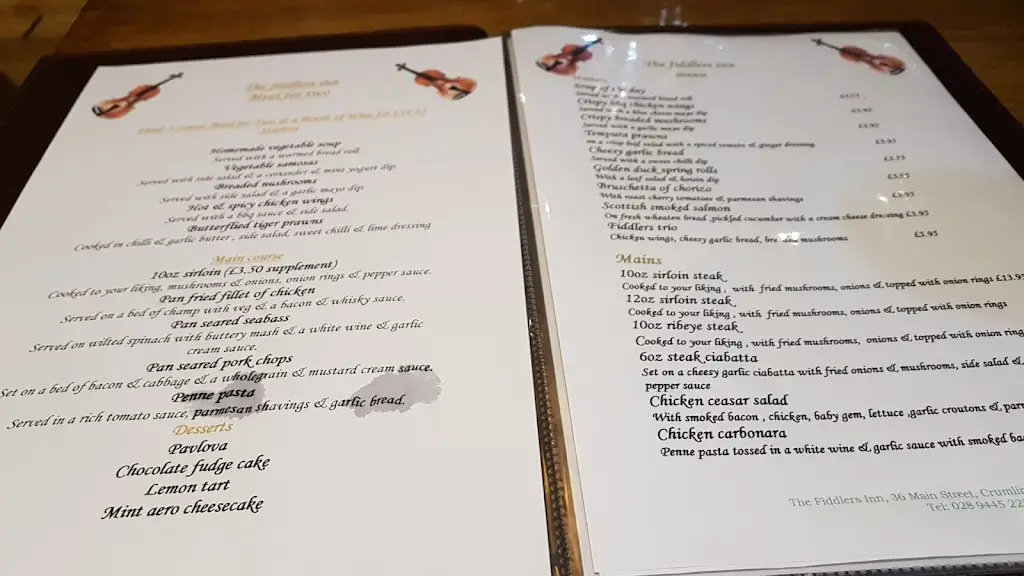 The Fiddlers Inn
Meal for Two
Starters
Homemade vegetable soup
Served with a warmed bread roll
Vegetable samosas
Served with side salad & a coriander & mint yogurt dip
Breaded mushrooms
Served with side salad & a garlic mayo dip
Hot & spicy chicken wings
Served with a bbq sauce & side salad.
Butterflied tiger prawns
Cooked in chilli & garlic butter , side salad, sweet chilli & lime dressing
Main course
10oz sirloin (£3.50 supplement)
Cooked to your liking, mushrooms & onions, onion rings & pepper sauce.
Pan fried fillet of chicken
Served on a bed of champ with veg & a bacon & whisky sauce.
Pan seared seabass
Served on wilted spinach with buttery mash & a white wine & garlic
cream sauce.
Pan seared pork chops
Set on a bed of bacon & cabbage & a wholegrain & mustard cream sauce.
Penne pasta
Served in a rich tomato sauce, parmesan shavings & garlic bread.
Desserts
Pavlova
Chocolate fudge cake
Lemon tart
Mint aero cheesecake
The Fiddlers Inn
Starters
Soup of the day
Served with warmed bread roll
Crispy bbq chicken wings
Served with a blue cheese mayo dip
Crispy breaded mushrooms £3.95
Served with a garlic mayo dip
Tempura prawns £3.95
on a crisp leaf salad with a spiced tomato & ginger dressing
Cheesy garlic bread £3.95
Served with a sweet chilli dip
Golden duck spring rolls
With a leaf salad & hoisin dip
Bruschetta of chorizo
With roast cherry tomatoes & parmesan shavings £3.95
Scottish smoked salmon
On fresh wheaten bread ,pickled cucumber with a cream cheese dressing £3.95
Fiddlers trio
Chicken wings, cheesy garlic bread, breaded mushrooms £5.95
Mains
10oz sirloin steak
Cooked to your liking , with fried mushrooms, onions & topped with onion rings £13.95
12oz sirloin steak
Cooked to your liking , with fried mushrooms, onions & topped with onion rings
10oz ribeye steak
Cooked to your liking , with fried mushrooms, onions & topped with onion
6oz steak ciabatta
Set on a cheesy garlic ciabatta with fried onions & mushrooms, side salad &
pepper sauce
Chicken ceasar salad
With smoked bacon , chicken, baby gem, lettuce ,garlic croutons &
Chicken carbonara
Penne pasta tossed in a white wine & garlic sauce with smoked
The Fiddlers Inn, 36 Main Street, Crumlin
Tel: 028 9445 22